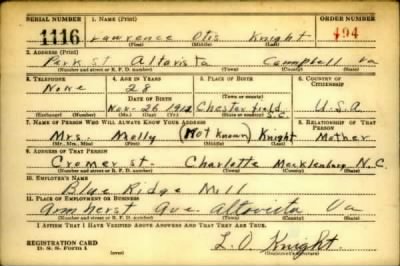 SERIAL NUMBER 1. NAME (Print) ORDER NUMBER
1116 Lawrence Otis Knight 494
(First) (Middle) (Last)
2. ADDRESS (Print)
Park St Altavista Campbell Va
(Number and street or R. F. D. number) (Town) (County) (State)
3. TELEPHONE 4. AGE IN YEARS 5. PLACE OF BIRTH 6. COUNTRY OF CITIZENSHIP
None 28
DATE OF BIRTH (Town or county)
Nov. 26 1912 Chesterfield S.C. U.S.A
(Exchange) (Number) (Mo.) (Day) (Yr.) (State or country)
7. NAME OF PERSON WHO WILL ALWAYS KNOW YOUR ADDRESS 8. RELATIONSHIP OF THAT PERSON
Mrs. Molly (Not known) Knight Mother
(Mr., Mrs., Miss) (First) (Middle) (Last)
9. ADDRESS OF THAT PERSON
Cremer St- Charlotte Mecklenburg N.C.
(Number and street or R. F. D. number) (Town) (County) (State)
10. EMPLOYER'S NAME
Blue Ridge Mill
11. PLACE OF EMPLOYMENT OR BUSINESS
Amherst Ave. Altavista Va
(Number and street or R. F. D. number) (Town) (County) (State)
I AFFIRM THAT I HAVE VERIFIED ABOVE ANSWERS AND THAT THEY ARE TRUE.
REGISTRATION CARD
D. S. S. Form 1 (over) L. O. Knight.
(Registrant's signature)